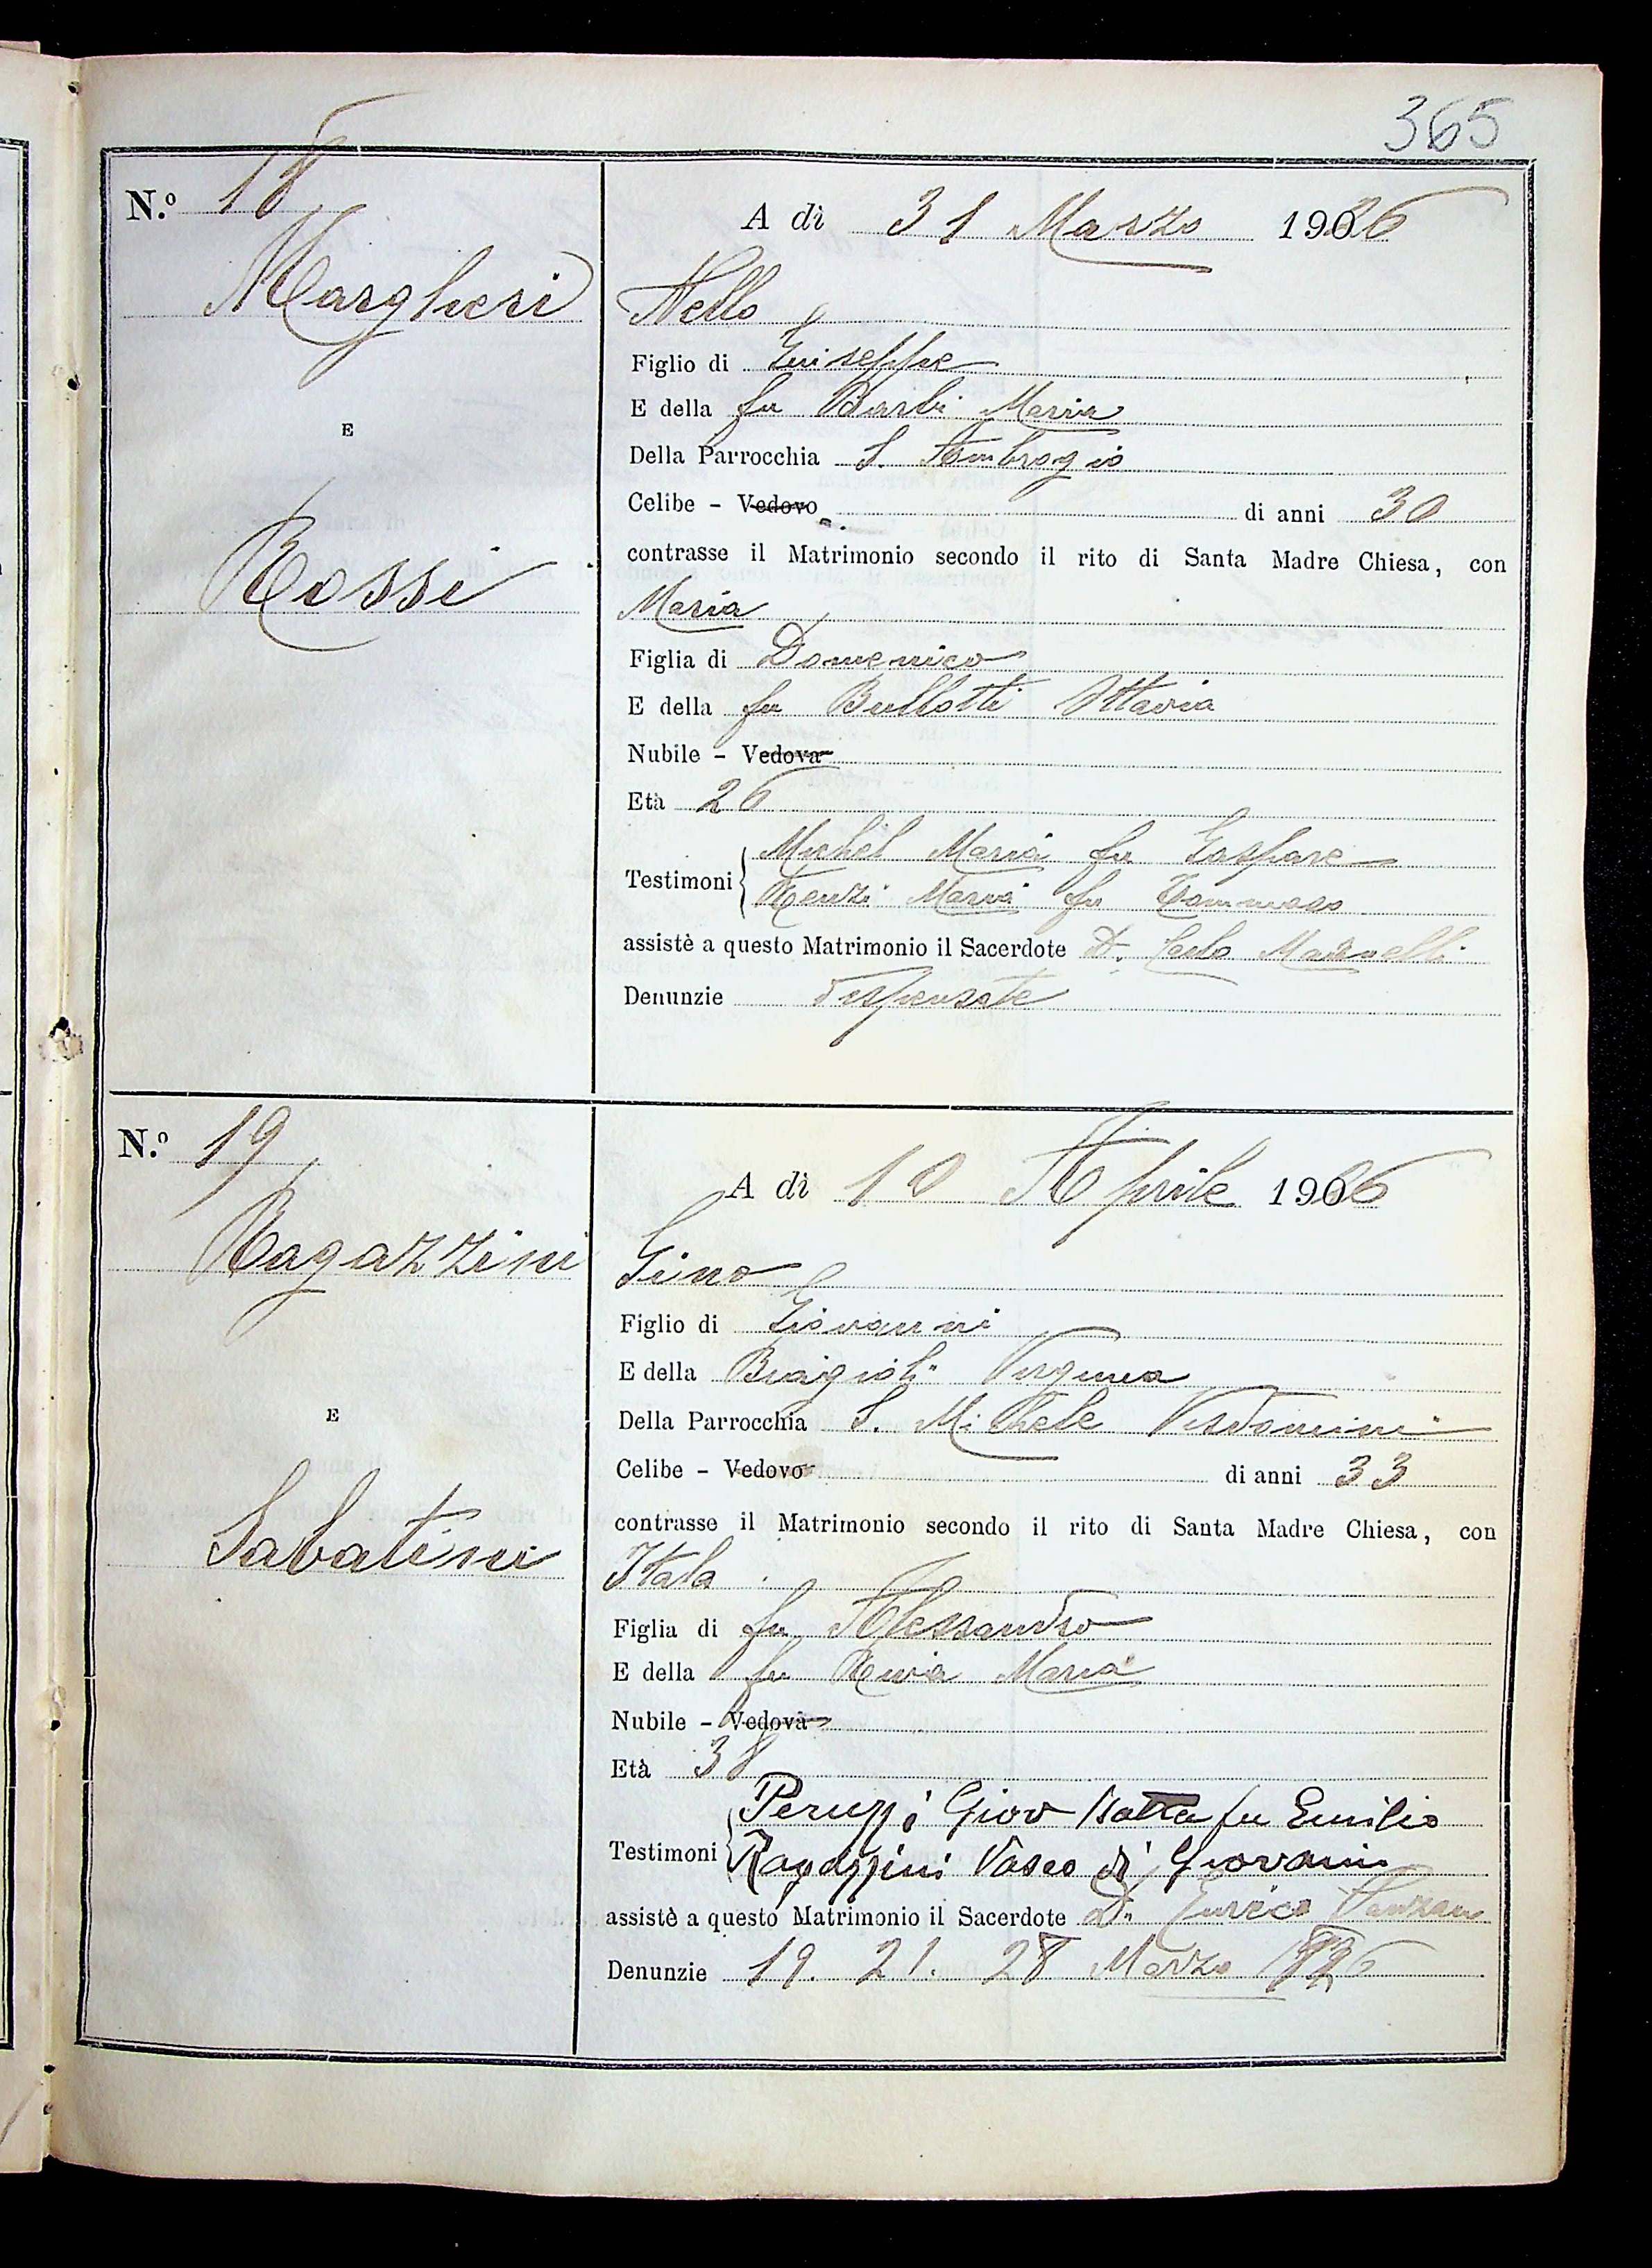 365
N.º 18
A dì 31 Marzo 1926
Margheri
Nello
Figlio di Giuseppe
E della fu Barbi Maria
E
Della Parrocchia S. Ambrogio
Celibe - Vedovo di anni 30
contrasse il Matrimonio secondo il rito di Santa Madre Chiesa, con
Rossi
Maria
Figlia di Domenico
E della fu Bullotti Ottavia
Nubile - Vedova
Età 26
Testimoni Michel Maria fu Gaspare
Renzi Maria fu Tommaso
assistè a questo Matrimonio il Sacerdote D. Carlo
Denunzie dispensate
N.º 19
A dì 10 Aprile 1926
Ragazzini
Gino
Figlio di Giovanni
E della Biagioli Virginia
E
Della Parrocchia S. Michele Visdomini
Celibe - Vedovo di anni 33
contrasse il Matrimonio secondo il rito di Santa Madre Chiesa, con
Sabatini
Itala
Figlia di fu Alessandro
E della fu Maria
Nubile - Vedova
Età 38
Testimoni Peruzzi Giov Batta fu Emilio
Ragazzini Vasco di Giovanni
assistè a questo Matrimonio il Sacerdote D. Enrico
Denunzie 19. 21. 28 Marzo 1926